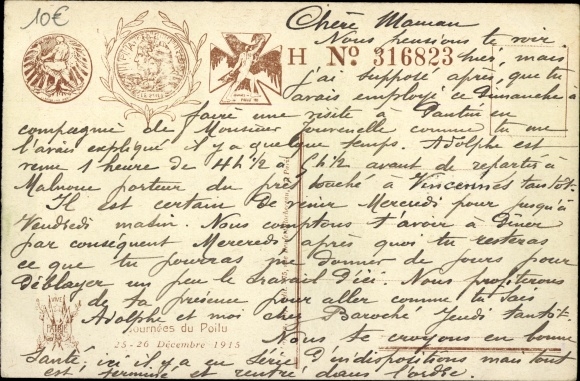 10€
Chère Maman
Nous pensions te voir
H No. 316823 hier, mais
j'ai supposé après, que tu
avais employé ce Dimanche à
faire une visite à Pantin en
compagnie de Monsieur comme tu me
l'avais expliqué il y a quelque temps. Adolphe est
venu 1 heure de 4h½ à 5h½ avant de repartir à
Malnoue porteur du prêt touché à Vincennes tantôt.
Il est certain de venir Mercredi pour jusqu'à
Vendredi matin. Nous comptons t'avoir à Dîner
par conséquent Mercredi après quoi tu resteras
ce que tu pourras me donner de jours pour
Déblayer un peu le travail d'ici. Nous profiterons
de ta présence pour aller comme tu sais
Adolphe et moi chez Baroché Jeudi tantôt.
Journées du Poilu
25-26 Décembre 1915
Nous te croyons en bonne
Santé, ici il y a eu Série D'indispositions mais tout
est terminé et rentré dans l'ordre.